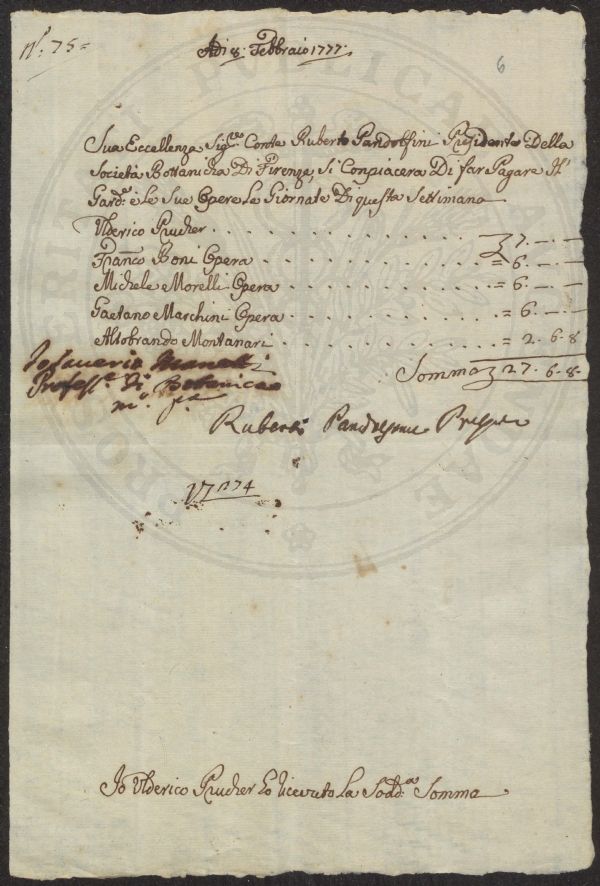 N.° 75=
Adi 8: Febbraio 1777:
6
Sua Eccellenza Sig.re Conte Ruberto Pandolfini Presidente Della
Società Bottanicha Di Firenze, Si Conpiacera Di far Pagare Il
Gard.e è le Sue Opere La Giornate Di questa Settimana
Ulderico Prucher . . . . . . . . . . . . . . 7. —. —
Franco Boni Opera . . . . . . . . . . . . = 6. —. —
Michele Morelli Opera . . . . . . . . . . = 6. —. —
Gaetano Marchini Opera . . . . . . . . . . = 6. —. —
Altobrando Montanari . . . . . . . . . . . = 2. 6. 8
Somma 27. 6. 8.
Io Saverio Manetti
Profess.e di Botanica
m.o p.a
Ruberto Pandolfini Preside
Io Ulderico Prucher ho riceuto La Sudd.a Somma